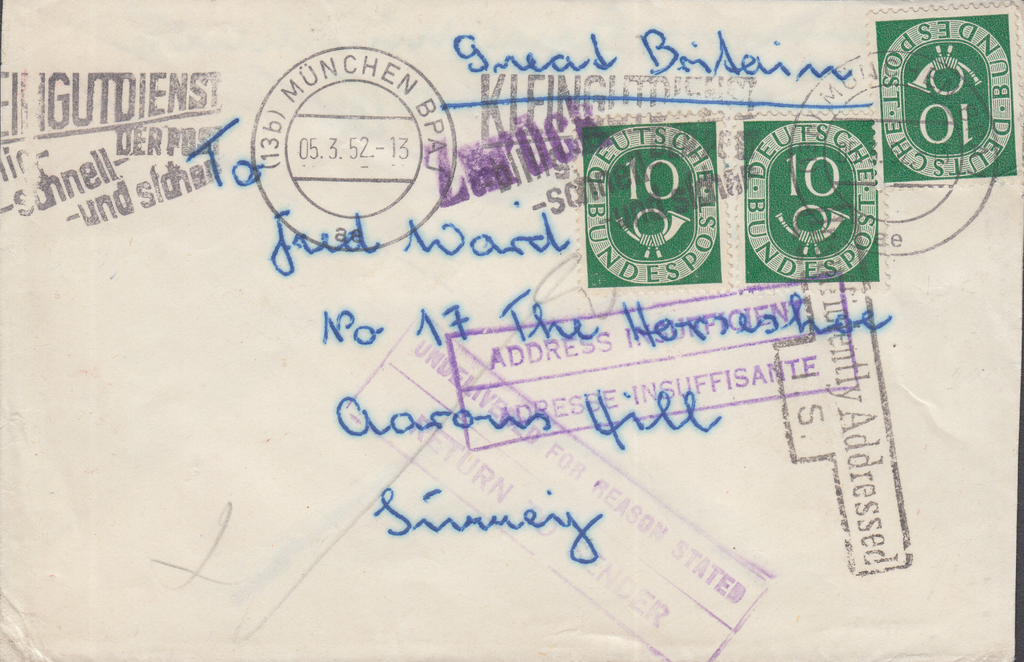 Great Britain
KLEINGUTDIENST
DER POST
-schnell-
-und sicher
(13b) MÜNCHEN BPA
05.3.52.-13
ae
ZURÜCK
KLEINGUTDIENST
-schnell-
DEUTSCHE BUNDESPOST
10
DEUTSCHE BUNDESPOST
10
DEUTSCHE BUNDESPOST
10
ae
To
Fred Ward
No 17 The Horreshoe
Aarons Hill
Surrey
ADDRESS INSUFFICIENT
ADRESSE INSUFFISANTE
UNDELIVERED FOR REASON STATED
RETURN TO SENDER
Addressed
S.